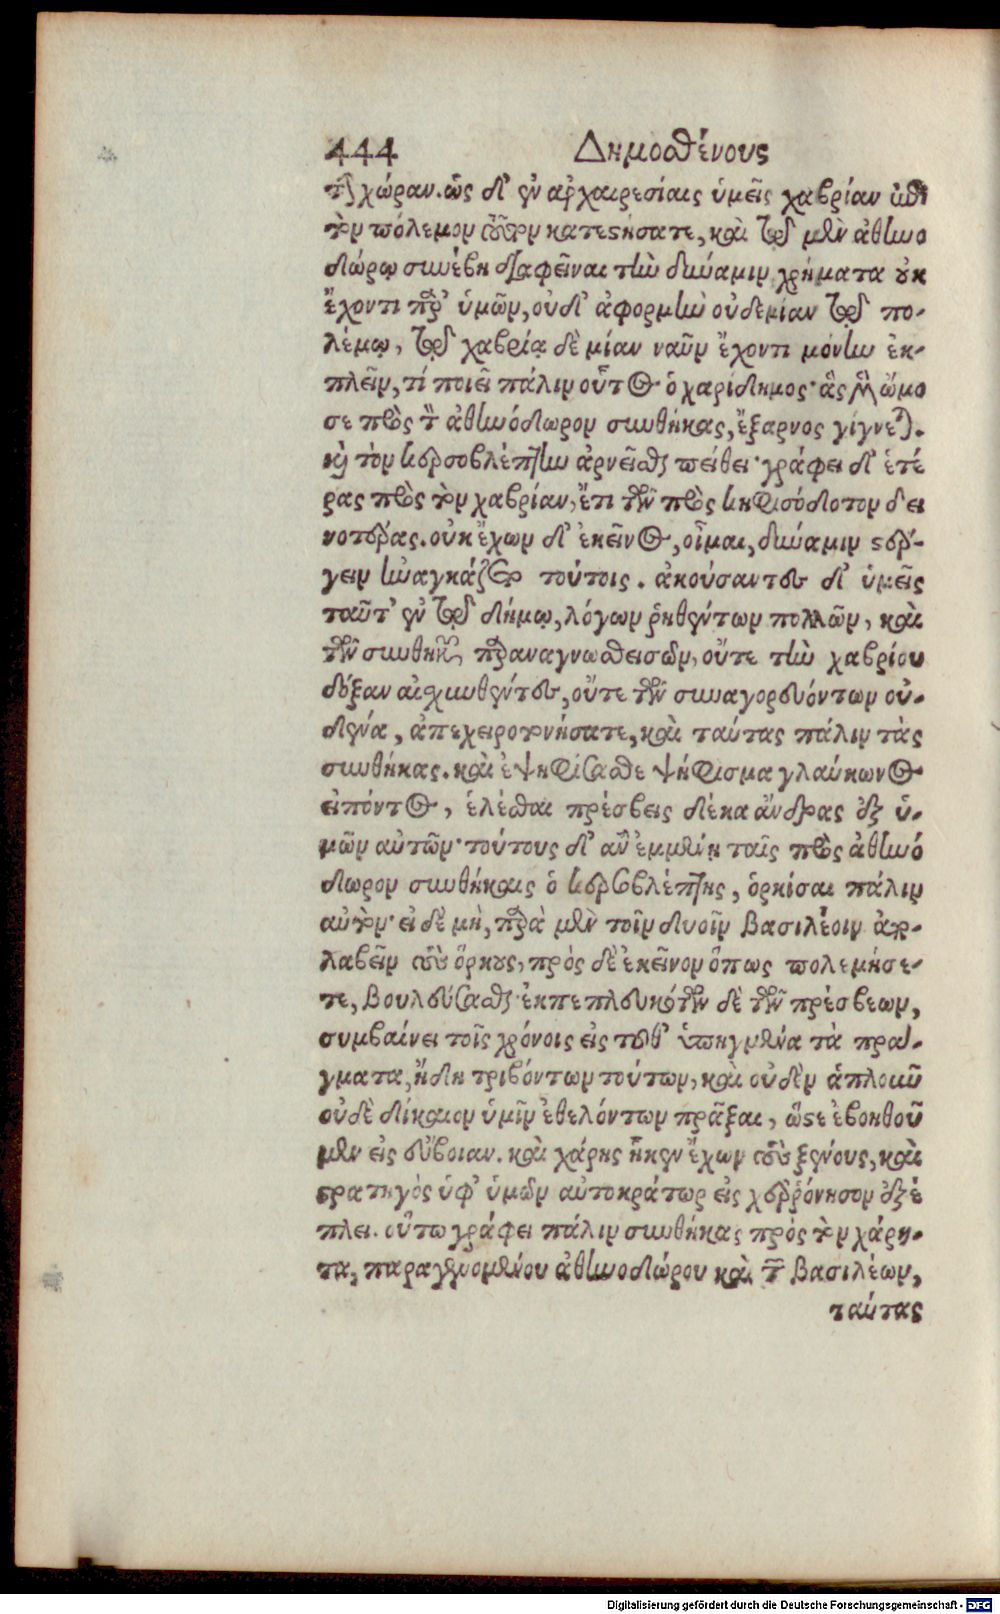 444 Δημοσθένους
τὴν χώραν. ὡς δ' ἐν ἀρχαιρεσίαις ὑμεῖς χαβρίαν ἐπὶ
τὸν πόλεμον τοῦτον κατεστήσατε, καὶ τῷ μὲν ἀθηνο
δώρῳ συνέβη διαφεῖναι τὴν δύναμιν, χρήματα οὐκ
ἔχοντι παρ' ὑμῶν, οὐδ' ἀφορμὴν οὐδεμίαν τῷ πο-
λέμῳ, τῷ χαβρίᾳ δὲ μίαν ναῦν ἔχοντι μόνην ἐκ-
πλεῖν, τί ποιεῖ πάλιν οὗτος ὁ χαρίδημος; ἃς μὲν ὤμο
σε πρὸς τὸν ἀθηνόδωρον συνθήκας, ἔξαρνος γίγνεται.
καὶ τὸν κερσοβλέπτην ἀρνεῖσθαι πείθει· γράφει δ' ἑτέ
ρας πρὸς τὸν χαβρίαν, ἔτι τῶν πρὸς κηφισόδοτον δει
νοτέρας. οὐκ ἔχων δ' ἐκεῖνος, οἶμαι, δύναμιν στέρ-
γειν ἠναγκάζετο τούτοις. ἀκούσαντες δ' ὑμεῖς
ταῦτ' ἐν τῷ δήμῳ, λόγων ῥηθέντων πολλῶν, καὶ
τῶν συνθηκῶν παραναγνωσθεισῶν, οὔτε τὴν χαβρίου
δόξαν αἰσχυνθέντες, οὔτε τῶν συναγορευόντων οὐ-
δένα, ἀπεχειροτονήσατε, καὶ ταύτας πάλιν τὰς
συνθήκας. καὶ ἐψηφίσασθε ψήφισμα γλαύκωνος
εἰπόντος, ἑλέσθαι πρέσβεις δέκα ἄνδρας ἐξ ὑ-
μῶν αὐτῶν· τούτους δ' ἂν ἐμμένῃ ταῖς πρὸς ἀθηνό
δωρον συνθήκαις ὁ κερσοβλέπτης, ὁρκίσαι πάλιν
αὐτόν· εἰ δὲ μὴ, παρὰ μὲν τοῖν δυοῖν βασιλέοιν ἀπο-
λαβεῖν τοὺς ὅρκους, πρὸς δὲ ἐκεῖνον ὅπως πολεμήσε-
τε, βουλεύσασθαι· ἐκπεπλευκότων δὲ τῶν πρέσβεων,
συμβαίνει τοῖς χρόνοις εἰς τοῦθ' ὑπηγμένα τὰ πρά-
γματα, ἤδη τριβόντων τούτων, καὶ οὐδὲν ἁπλοῦν
οὐδὲ δίκαιον ὑμῖν ἐθελόντων πρᾶξαι, ὥστε ἐβοηθοῦ
μεν εἰς εὔβοιαν. καὶ χάρης ἧκεν ἔχων τοὺς ξένους, καὶ
στρατηγὸς ὑφ' ὑμῶν αὐτοκράτωρ εἰς χερρόνησον ἐξέ
πλει. οὕτω γράφει πάλιν συνθήκας πρὸς τὸν χάρη-
τα, παραγενομένου ἀθηνοδώρου καὶ τῶν βασιλέων,
ταύτας
Digitalisierung gefördert durch die Deutsche Forschungsgemeinschaft - DFG